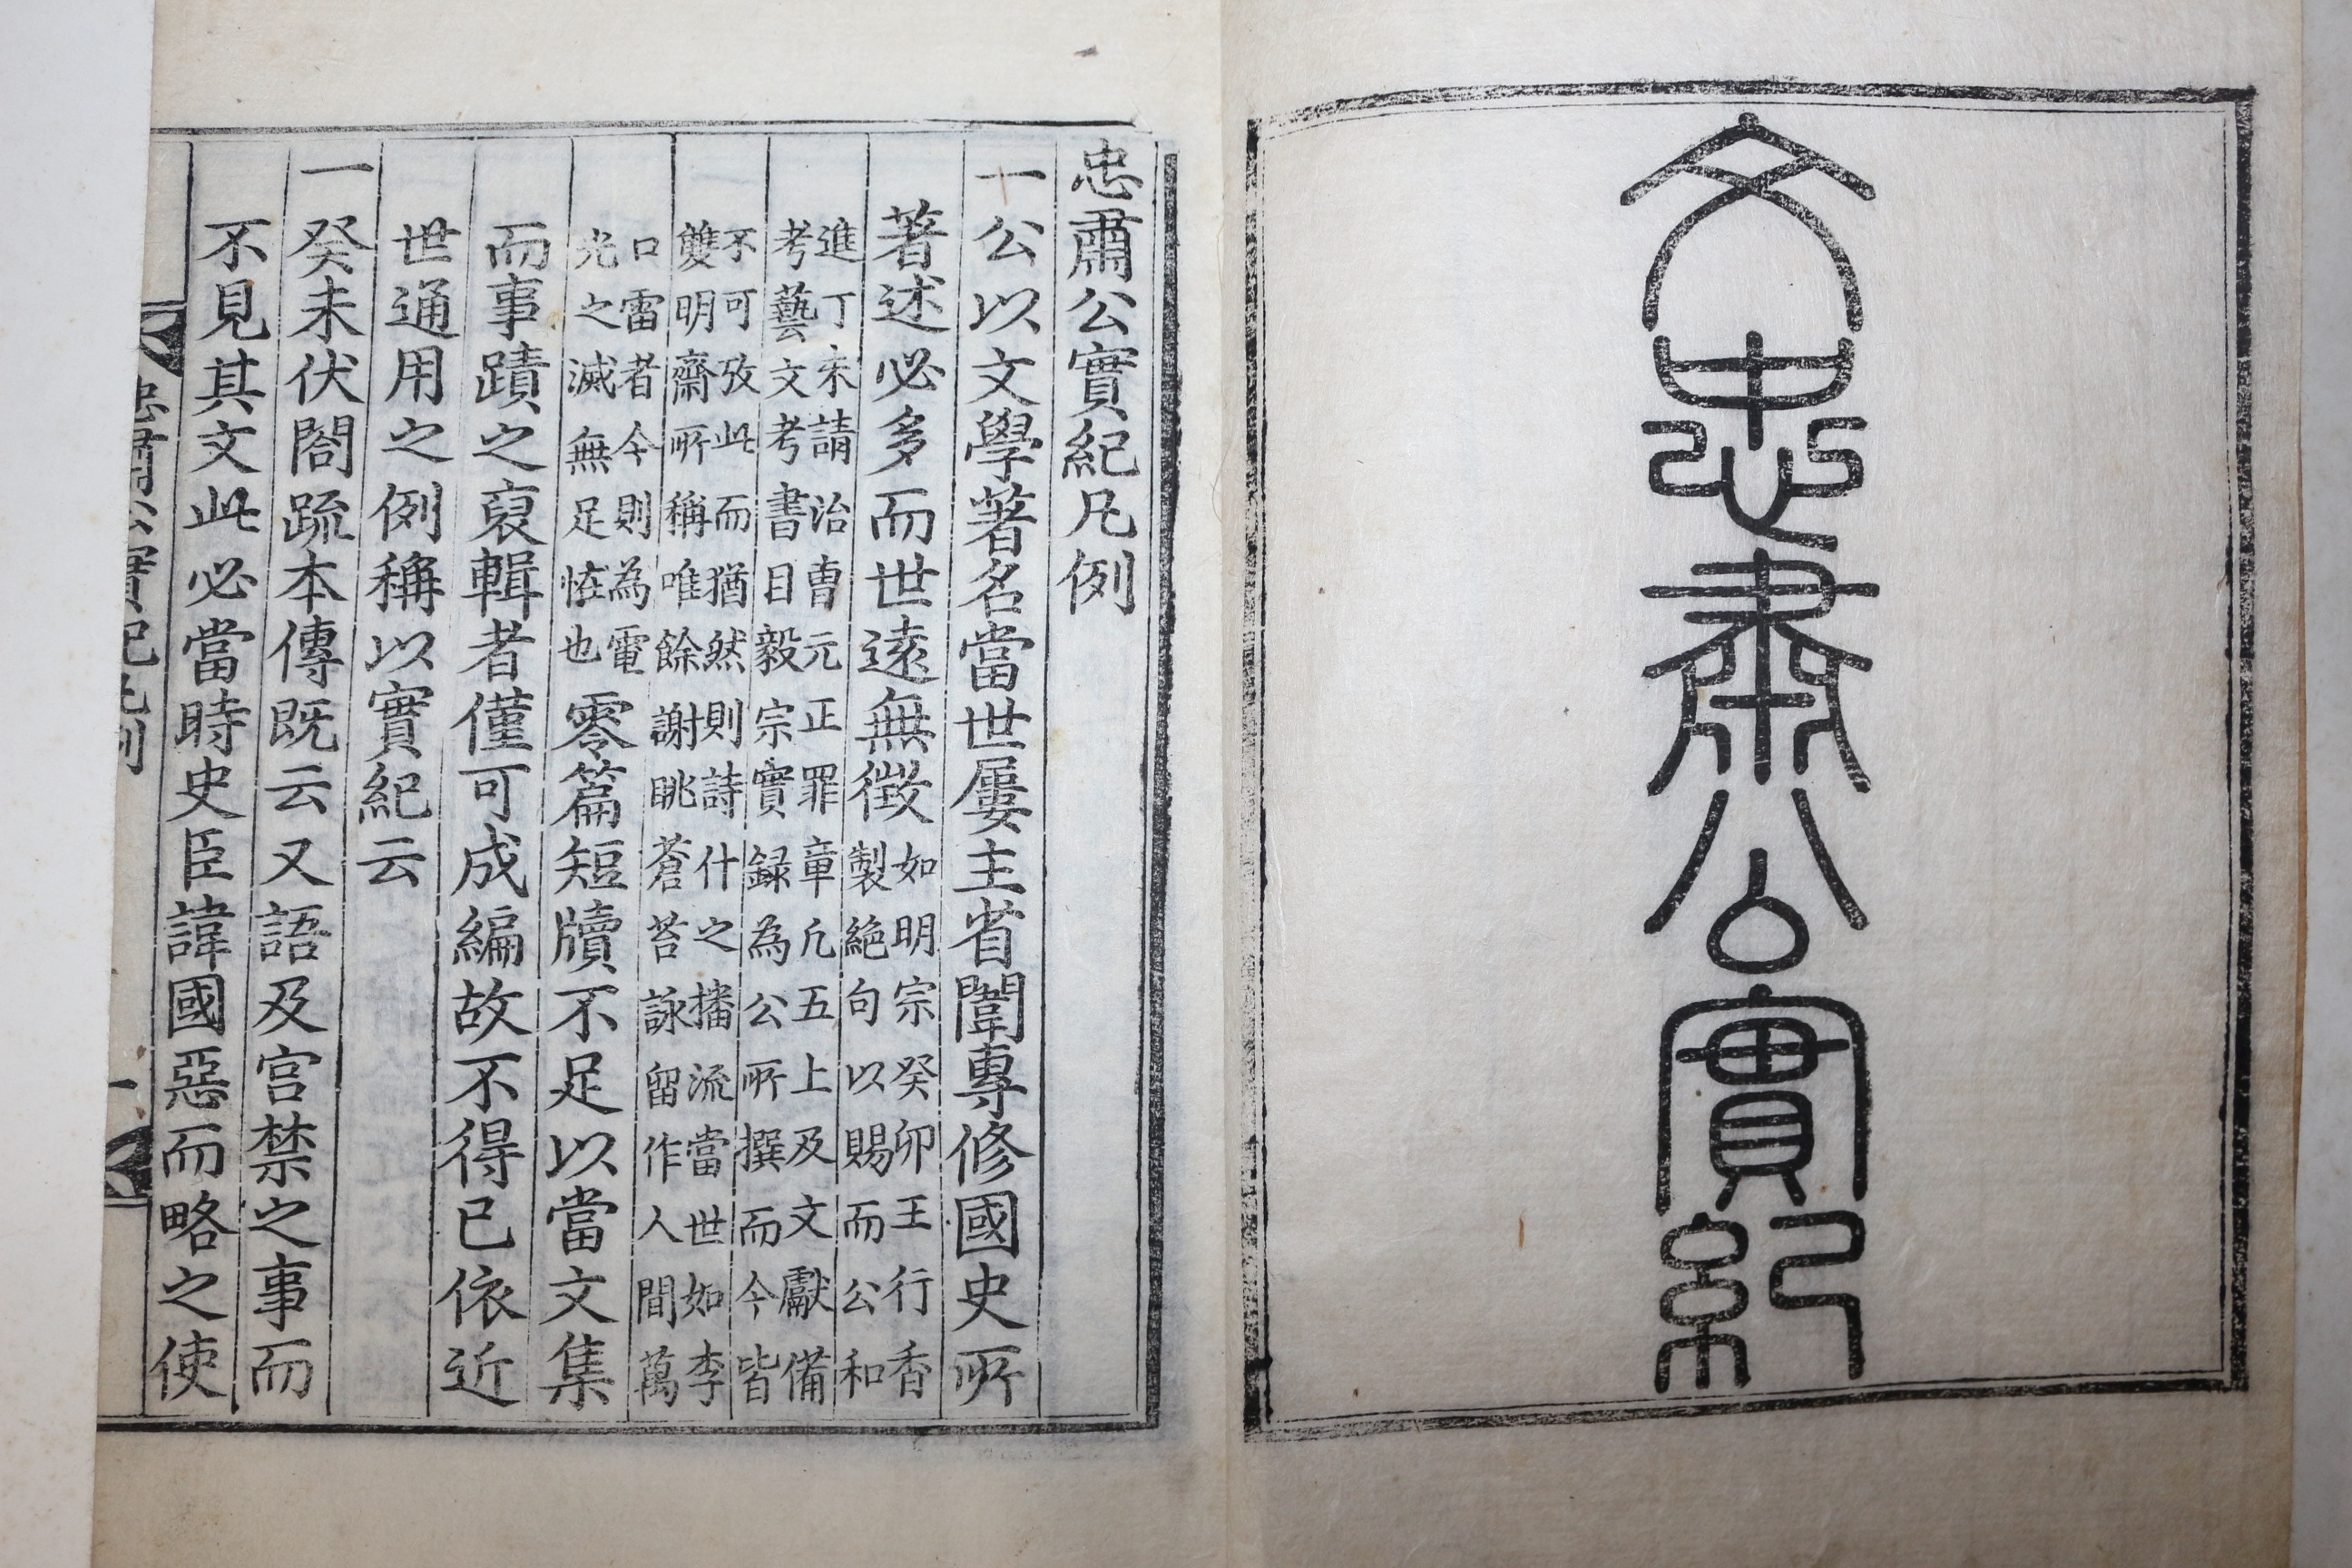 文忠肅公實紀
忠肅公實紀凡例
一公以文學著名當世屢主省闈專修國史所
著述必多而世遠無徴
如明宗癸卯王行香
製絶句以賜而公和
進丁未請治曺元正罪章凢五上及文獻備
考藝文考書目毅宗實録為公所撰而今皆
不可攷此而猶然則詩什之播流當世如李
雙明齋所稱唯餘謝眺蒼苔詠留作人間萬
口雷者今則為電
光之滅無足恠也
零篇短牘不足以當文集
而事蹟之裒輯者僅可成編故不得已依近
世通用之例稱以實紀云
一癸未伏閤疏本傳既云又語及宫禁之事而
不見其文此必當時史臣諱國惡而略之使
忠肅公實紀凡例 一